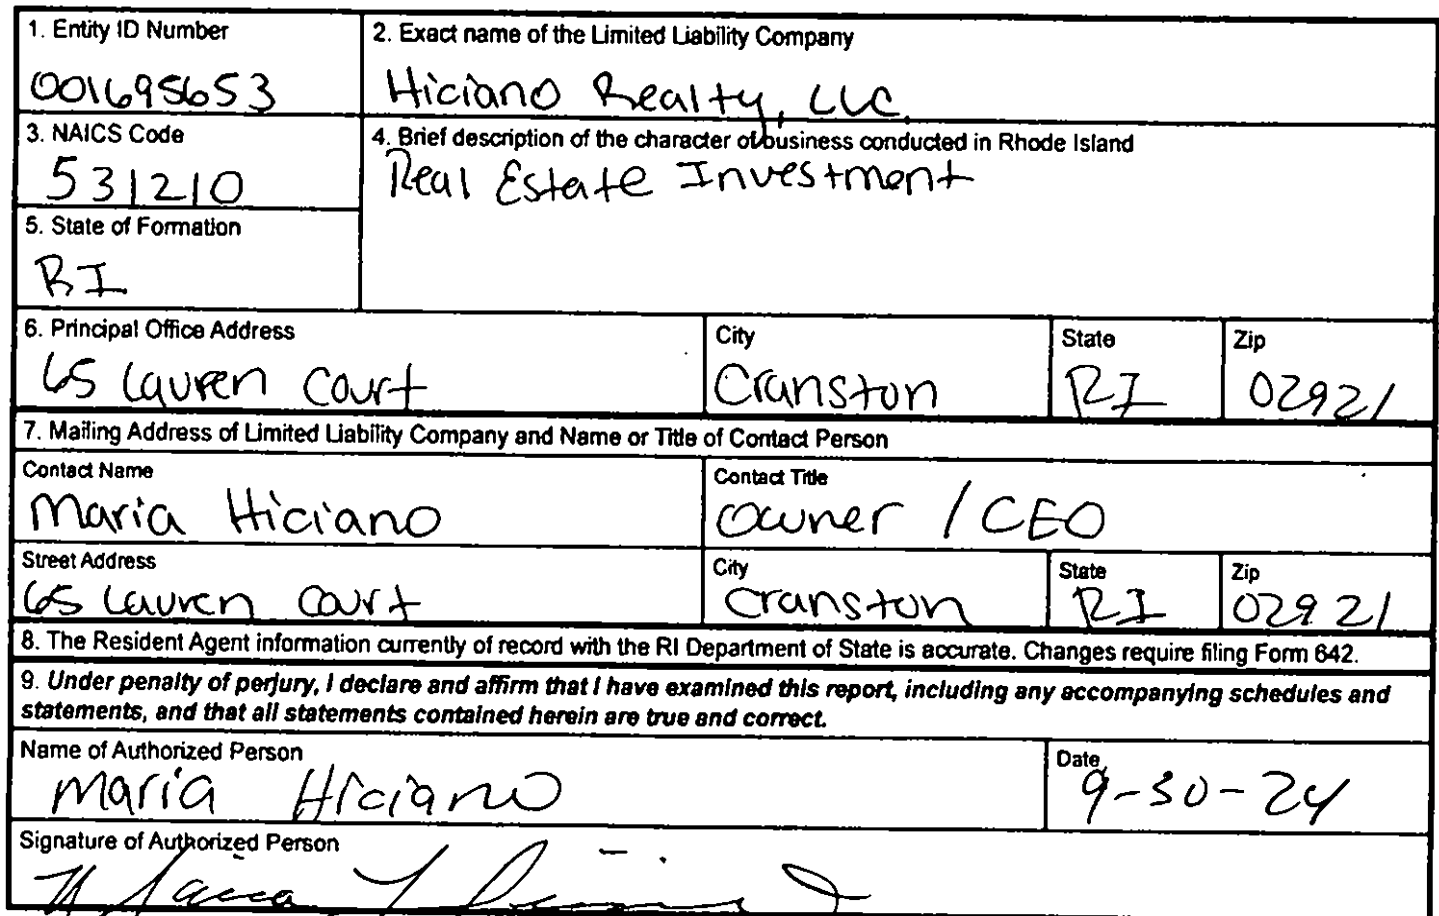 1. Entity ID Number
001695653
2. Exact name of the Limited Liability Company
Hiciano Realty, LLC
3. NAICS Code
531210
4. Brief description of the character of business conducted in Rhode Island
Real Estate Investment
5. State of Formation
RI
6. Principal Office Address
65 Lauren Court
City
Cranston
State
RI
Zip
02921
7. Mailing Address of Limited Liability Company and Name or Title of Contact Person
Contact Name
Maria Hiciano
Contact Title
Owner / CEO
Street Address
65 Lauren Court
City
Cranston
State
RI
Zip
02921
8. The Resident Agent information currently of record with the RI Department of State is accurate. Changes require filing Form 642.
9. Under penalty of perjury, I declare and affirm that I have examined this report, including any accompanying schedules and
statements, and that all statements contained herein are true and correct.
Name of Authorized Person
Maria Hiciano
Date
9-30-24
Signature of Authorized Person